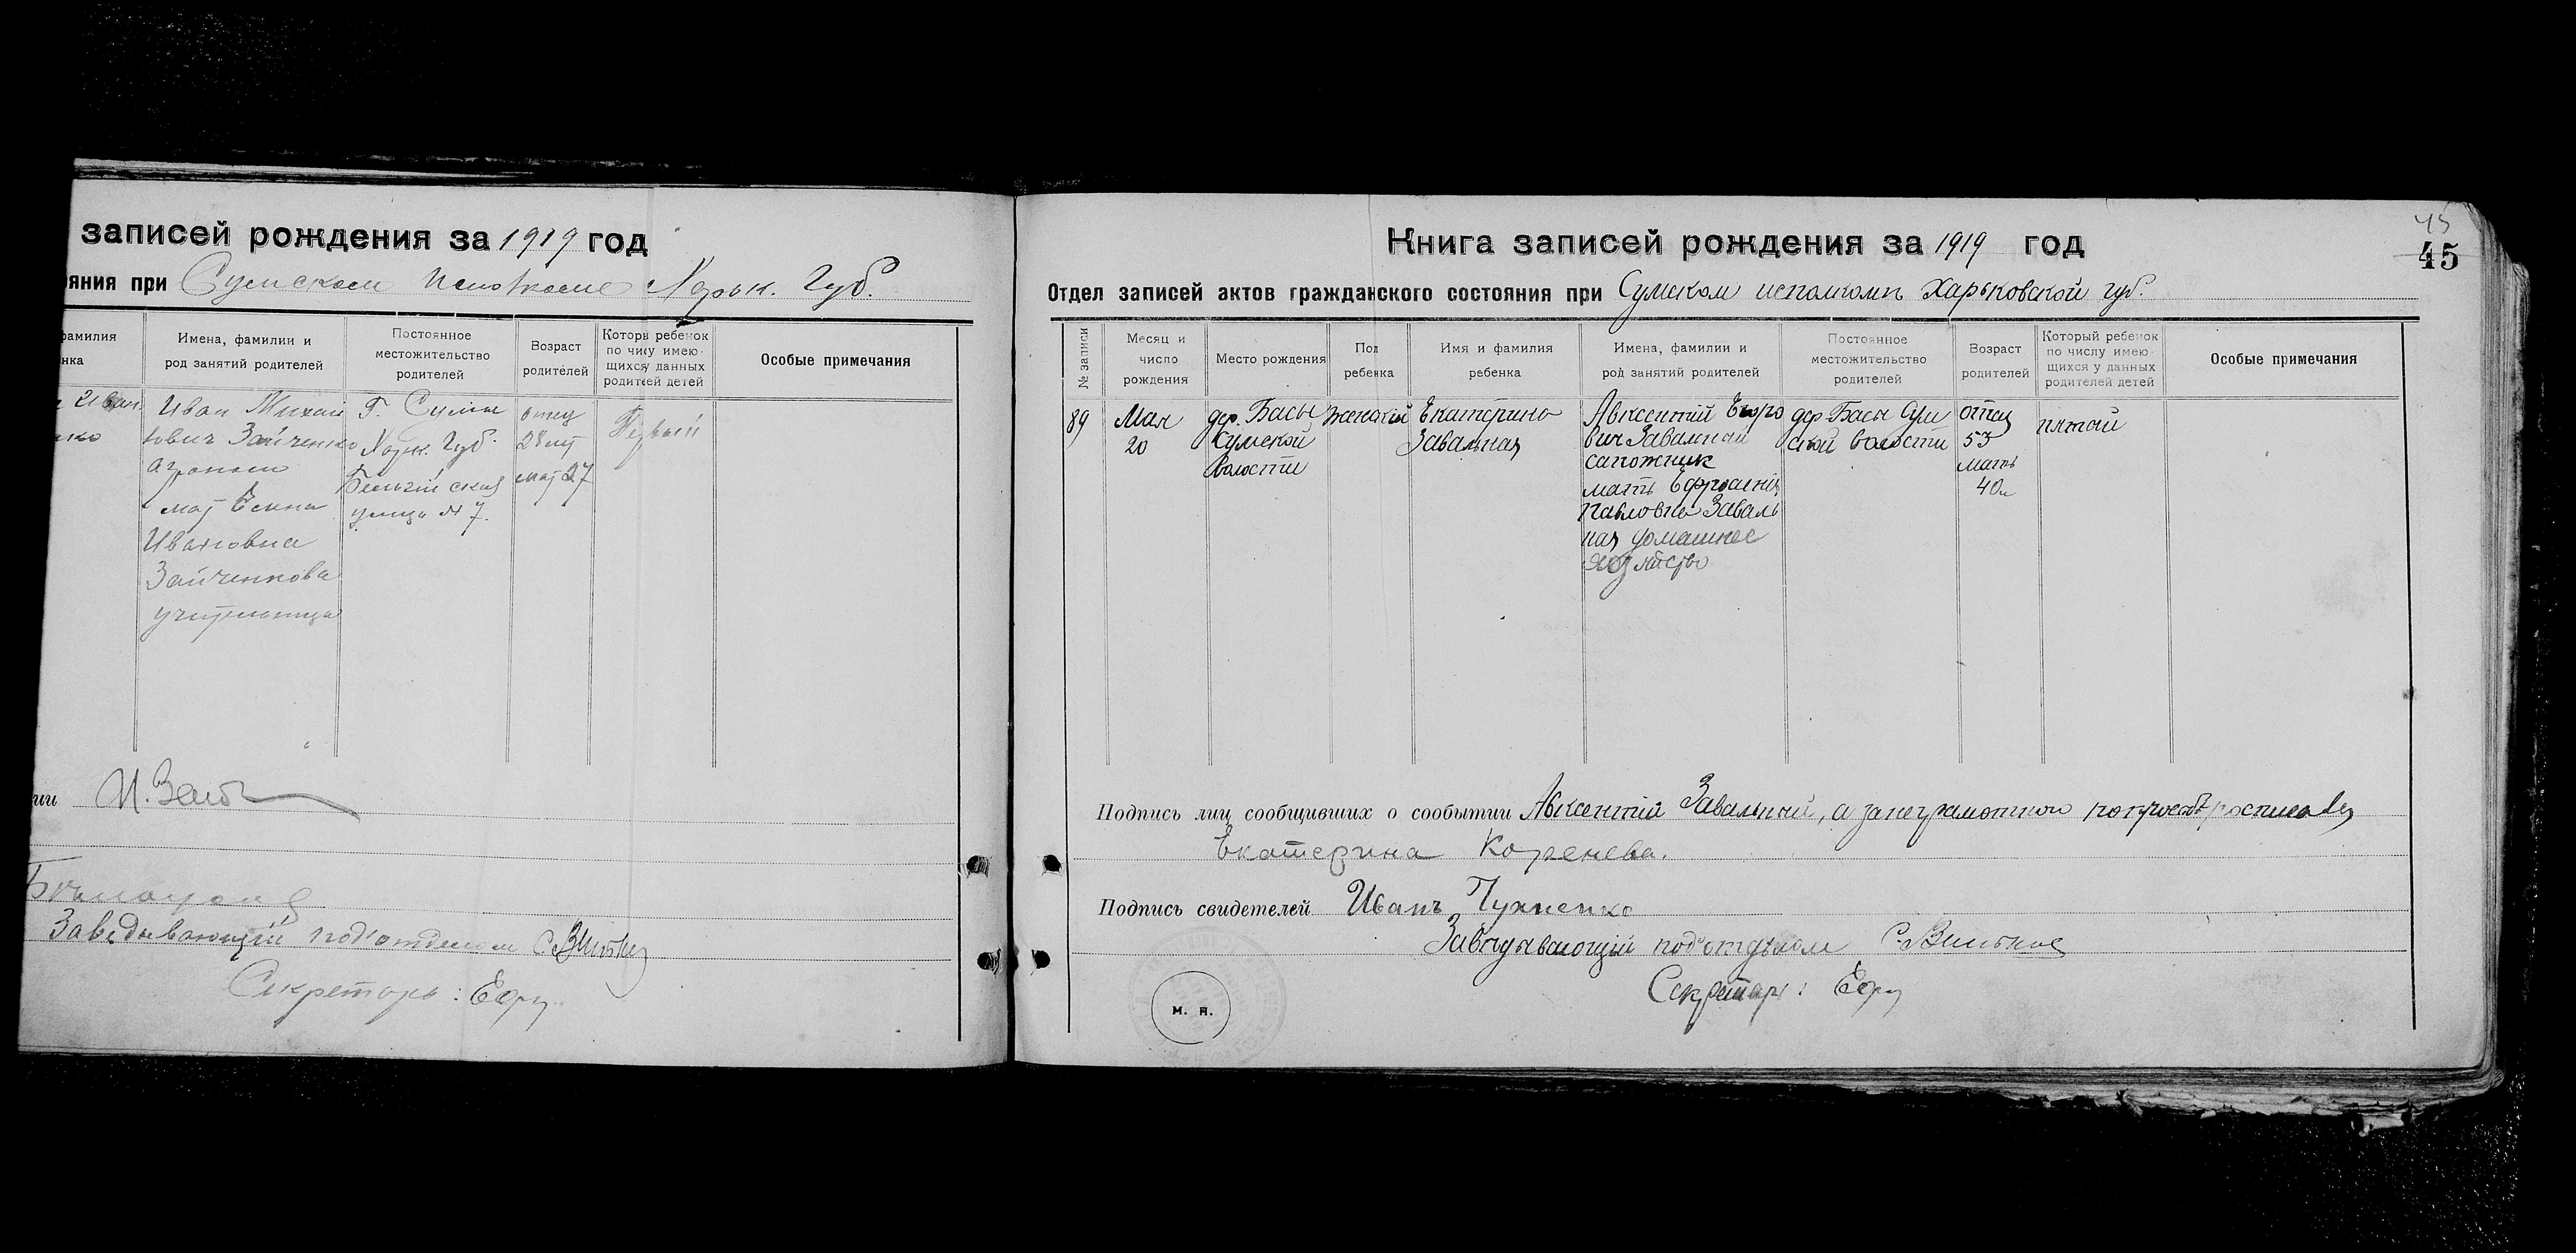 записей рождения за 1919 год
яния при Сумском Исполкоме Харьк. Губ.
фамилия
нка
Имена, фамилии и
род занятий родителей
Постоянное
местожительство
родителей
Возраст
родителей
Которы ребенок
по чису имею-
щихся у данных
родитей детей
Особые примечания
Иван
нко
Иван Михай
лович Зайченко
агроном
мат Елена
Ивановна
Зайченкова
учительница
Г. Сумы
Харьк. Губ.
ская
улица № 7.
отец
28 лет
мат 27
Первый
нии И. Заи
Заведывающий под'отделом С. Вильк
Секретарь: Ефр
45
45
Книга записей рождения за 1919 год
Отдел записей актов гражданского состояния при Сумском исполкомъ Харьковской губ.
№ записи
Месяц и
число
рождения
Место рождения
Пол
ребенка
Имя и фамилия
ребенка
Имена, фамилии и
род занятий родителей
Постоянное
местожительство
родителей
Возраст
родителей
Который ребенок
по числу имею-
щихся у данных
родителей детей
Особые примечания
89
Мая
20
дер. Басы
Сумской
волости
женский
Екатерина
Завальная
Авксентий Егоро
вич Завальный
сапожник
мать Ефросиния
Павловна Заваль
ная домашнее
хозяйство
дер Басы Сум
ской волости
отец
53
мать
40л
пятый
Подпись лиц сообщивших о сообытии Авксентий Завальный, а за неграмотного
Екатерина Коренева.
Подпись свидетелей Иванъ
Завѣдывающій под'отдѣлом С. Вильк
Секретарь: Ефр
м. п.